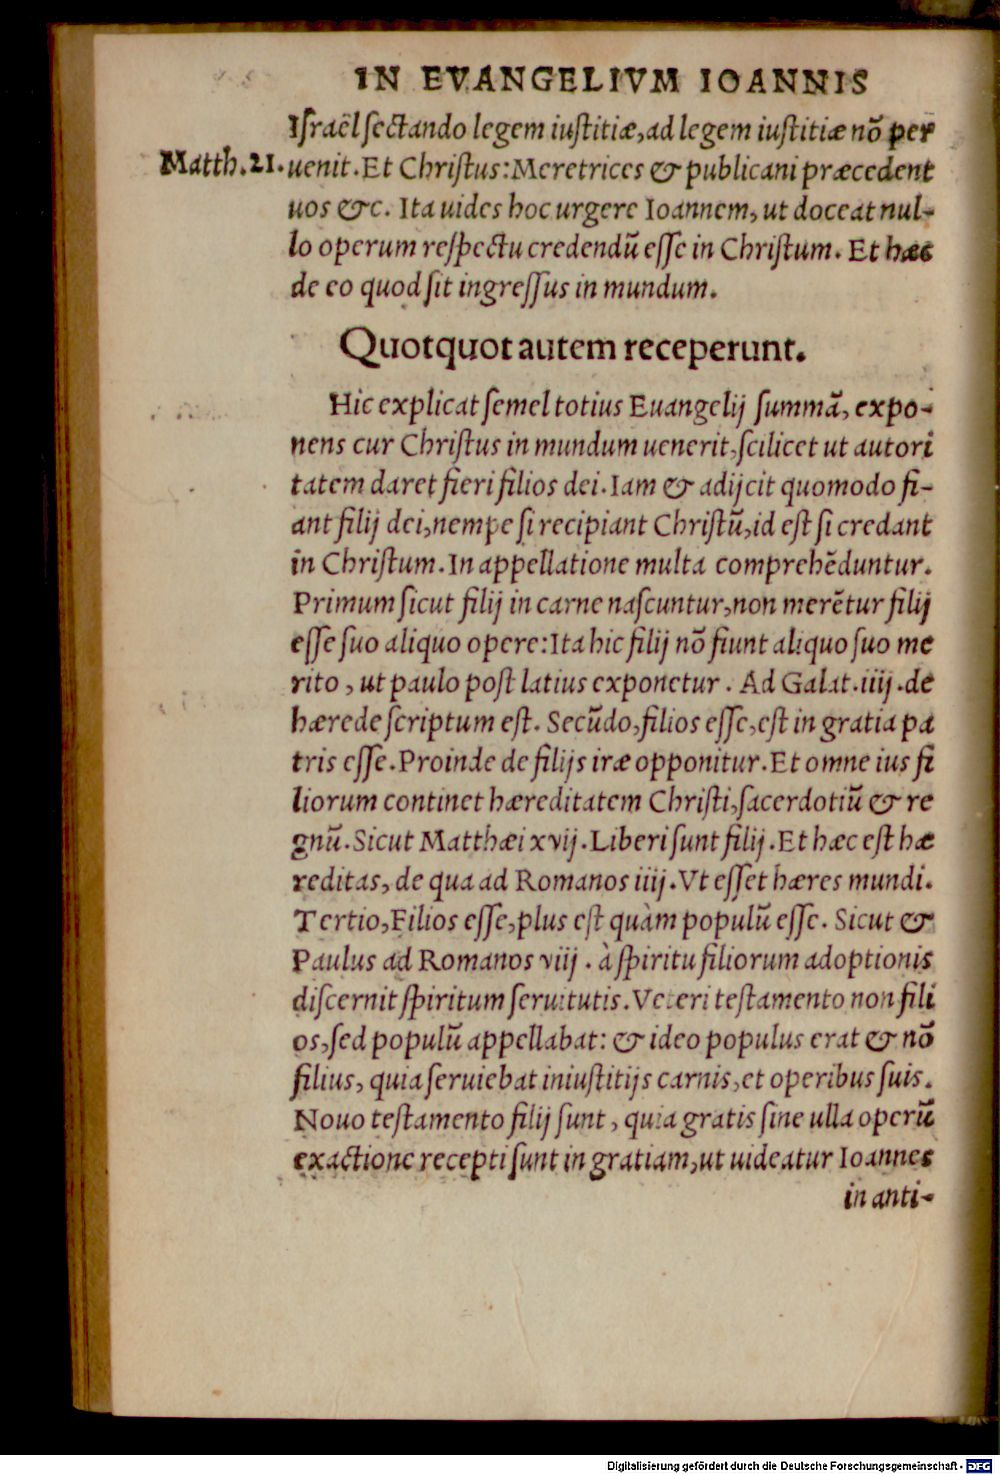 IN EVANGELIVM IOANNIS
Iſraël ſectando legem iuſtitiæ, ad legem iuſtitiæ nō per
Matth. 21. uenit. Et Chriſtus: Meretrices & publicani præcedent
uos &c. Ita uides hoc urgere Ioannem, ut doceat nul-
lo operum reſpectu credendū eſſe in Chriſtum. Et hæc
de eo quod ſit ingreſſus in mundum.
Quotquot autem receperunt.
Hic explicat ſemel totius Euangelij ſummā, expo-
nens cur Chriſtus in mundum uenerit, ſcilicet ut autori
tatem daret fieri filios dei. Iam & adijcit quomodo fi-
ant filij dei, nempe ſi recipiant Chriſtū, id eſt ſi credant
in Chriſtum. In appellatione multa comprehēduntur.
Primum ſicut filij in carne naſcuntur, non merētur filij
eſſe ſuo aliquo opere: Ita hic filij nō fiunt aliquo ſuo me
rito, ut paulo poſt latius exponetur. Ad Galat. iiij. de
hærede ſcriptum eſt. Secūdo, filios eſſe, eſt in gratia pa
tris eſſe. Proinde de filijs iræ opponitur. Et omne ius fi
liorum continet hæreditatem Chriſti, ſacerdotiū & re
gnū. Sicut Matthæi xvij. Liberi ſunt filij. Et hæc eſt hæ
reditas, de qua ad Romanos iiij. Vt eſſet hæres mundi.
Tertio, Filios eſſe, plus eſt quàm populū eſſe. Sicut &
Paulus ad Romanos viij. à ſpiritu filiorum adoptionis
diſcernit ſpiritum ſeruitutis. Veteri teſtamento non fili
os, ſed populū appellabat: & ideo populus erat & nō
filius, quia ſeruiebat iniuſtitijs carnis, et operibus ſuis.
Nouo teſtamento filij ſunt, quia gratis ſine ulla operū
exactione recepti ſunt in gratiam, ut uideatur Ioannes
in anti-
Digitalisierung gefördert durch die Deutsche Forschungsgemeinschaft - DFG